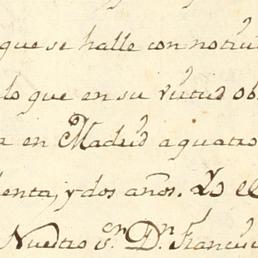 que se halle con notici
lo que en su virtud ob
a en Madrid a quatro
enta, y dos años. Yo el
Nuestro Sr. Dn. Francisc